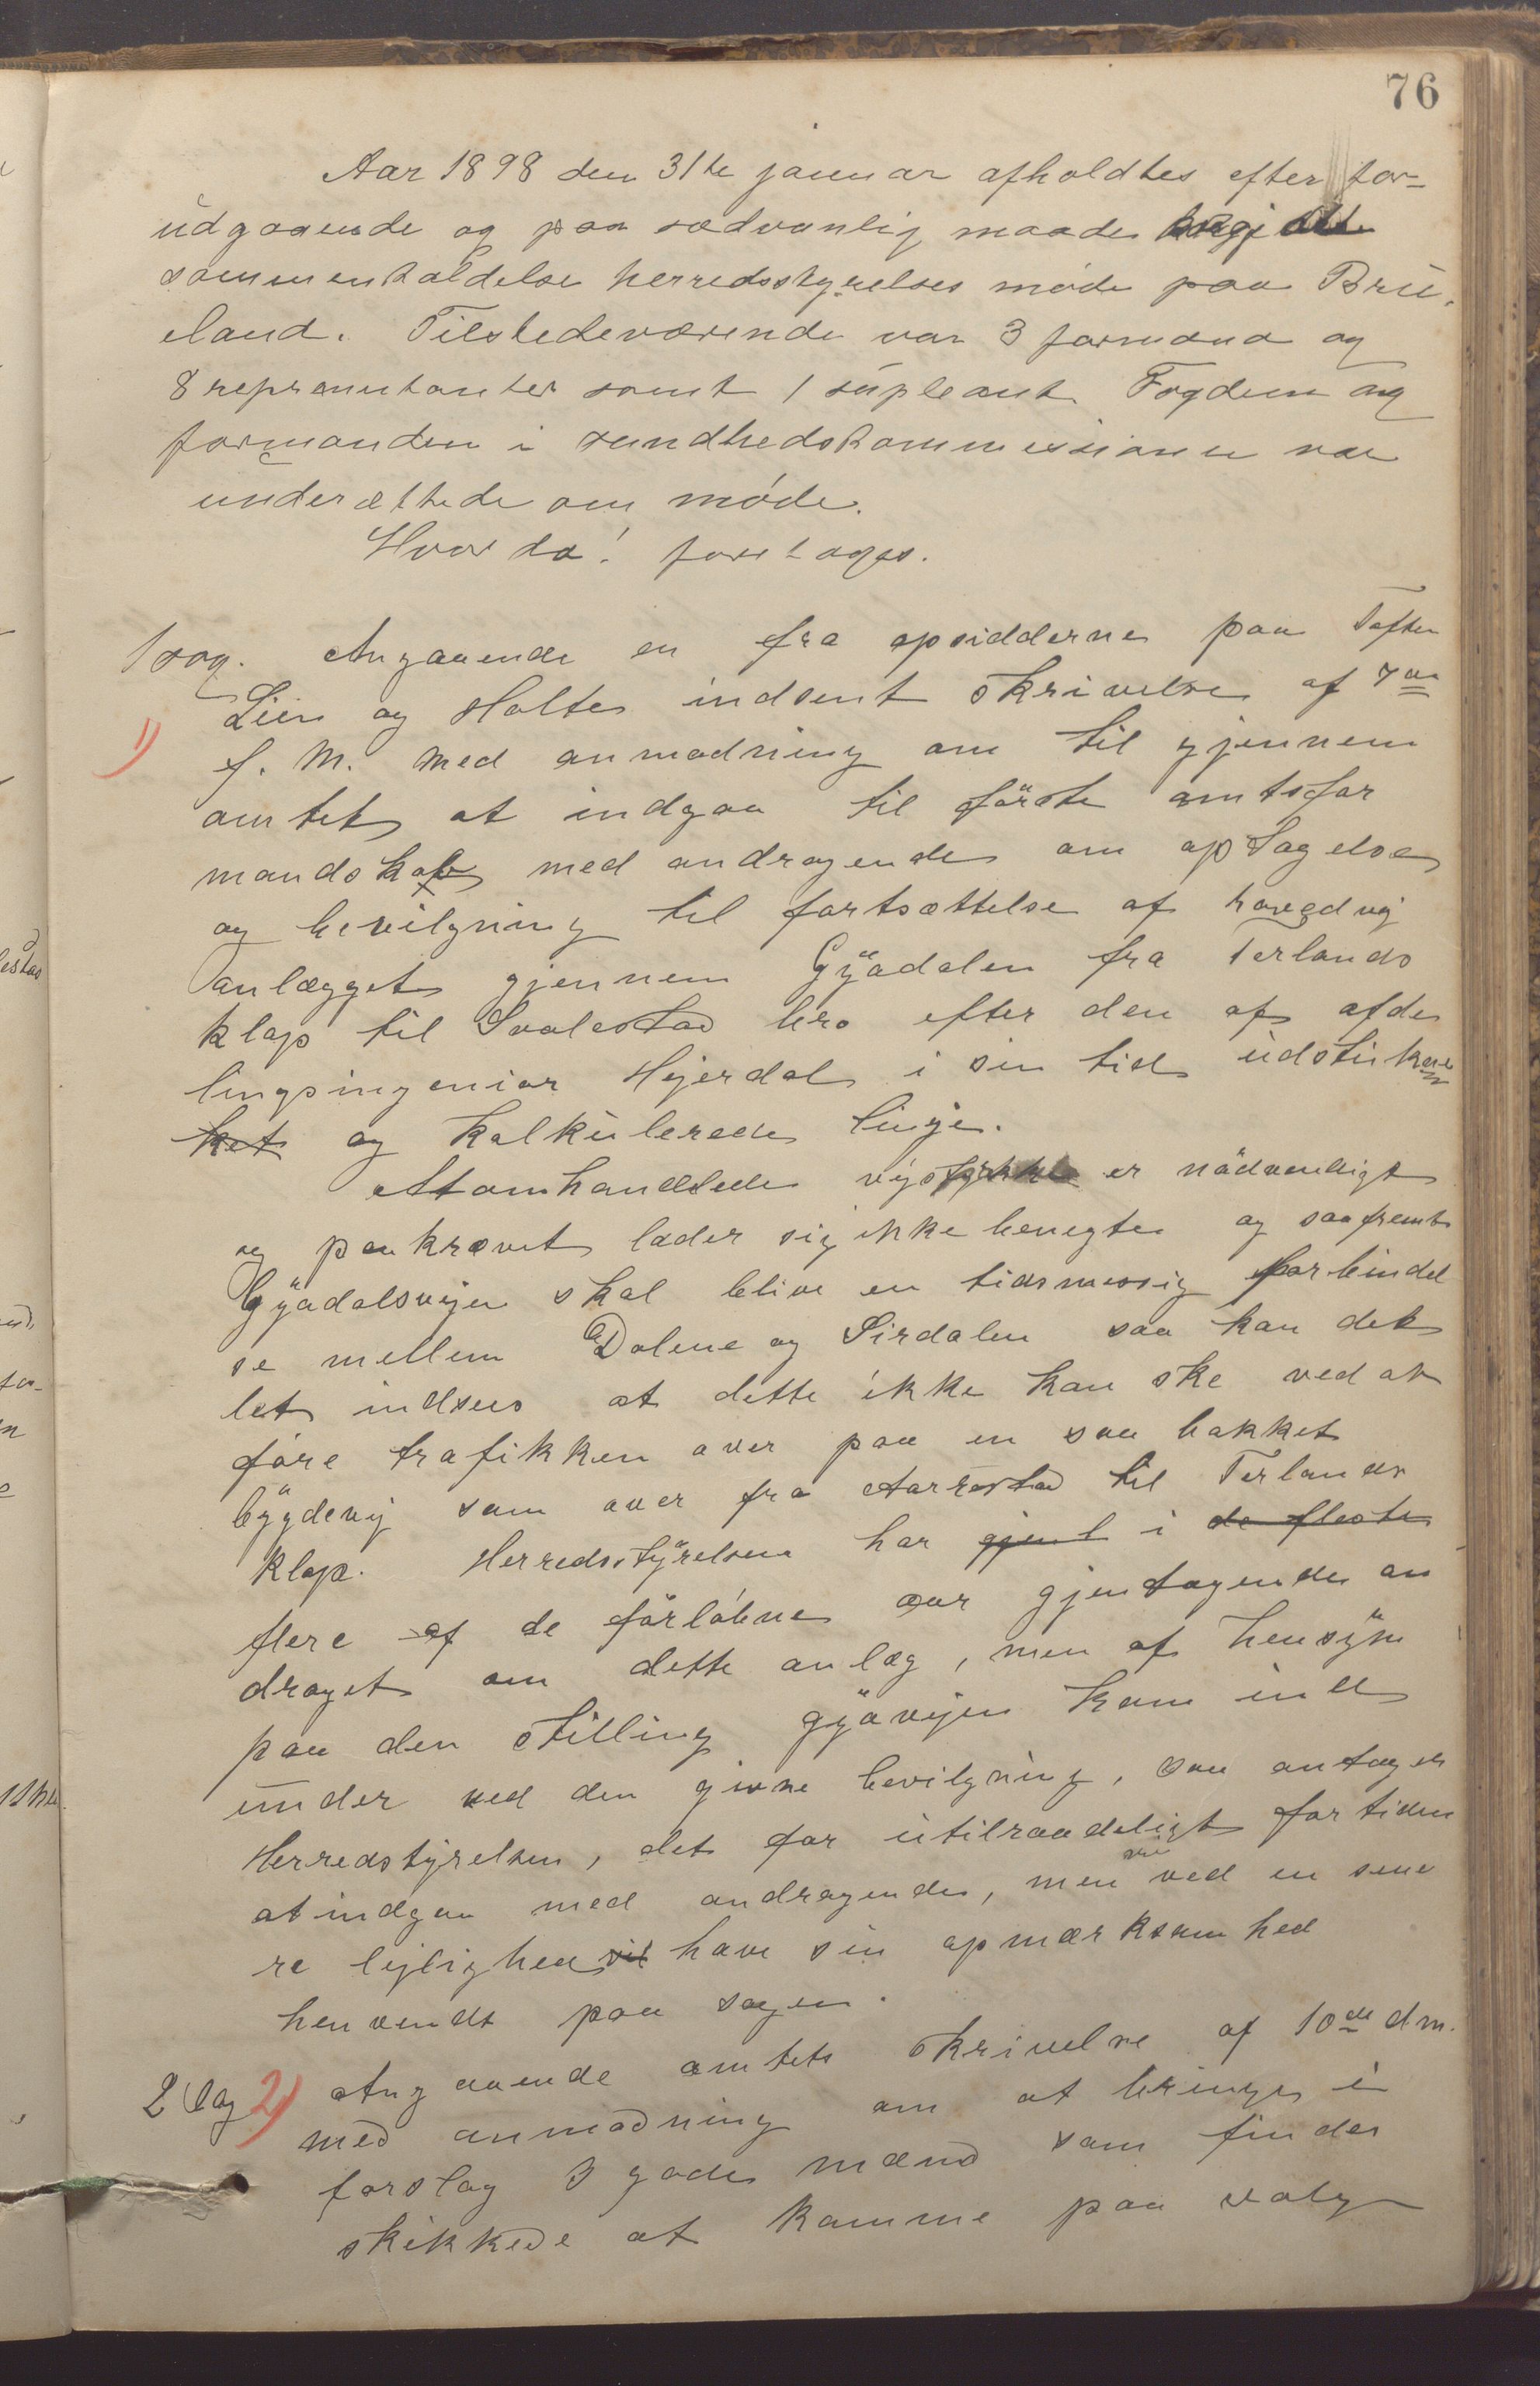 76
Aar 1898 den 31te januar afholdtes efter for-
udgaaende og paa sædvanlig maade
sammenkaldelse herredsstyrelses møde paa Brue-
land. Tilstedeværende var 3 formænd og
8 repræsentanter samt 1 supleant. Fogden og
formanden i sundhedskommissionen var
underættede om møde.
Hvor da! foretages.
1 sag. Angaaende en fra opsidderne paa Toften
1)
Lien og Holte indsent skrivelse af 7de
f. M. med anmodning om til gjennem
amtet at indgaa til første amtsfor
mandskab med andragende om optagelse
og bevilgning til fortsættelse af hovedvej
anlægget gjennem Gyadalen fra Terlands
klap til Svalestad bro efter den af afde
lingsingeniør Hjerdal i sin tid udstukne
ket og kalkulerede linje.
At omhandlede vejstykke er nødvendigt
og paakrævet lader sig ikke benegte og saafremt
Gyadalsvejen skal blive en tidsmessig forbindel
se mellem Dalene og Sirdalen saa kan det
let indsees at dette ikke kan ske ved at
føre trafikken over paa en saa bakket
bygdevej som over fra Aarrestad til Terlands
klap. Herredsstyrelsen har gjent i de fleste
flere af de forløbne aar gjentagende an
draget om dette anlæg, men af hensyn
paa den stilling gyavejen kom ind
under ved den givne bevilgning, saa antager
Herredstyrelsen, det for utilraadeligt for tiden
at indgaa med andragende, men ved en sene
re lejlighed vil have sin opmærksomhed
henvendt paa sagen.
2 Sag 2) Angaaende amtets skrivelse af 10de dm.
med anmodning om at bringe i
forslag 3 gode mænd som findes
skikkede at komme paa valg